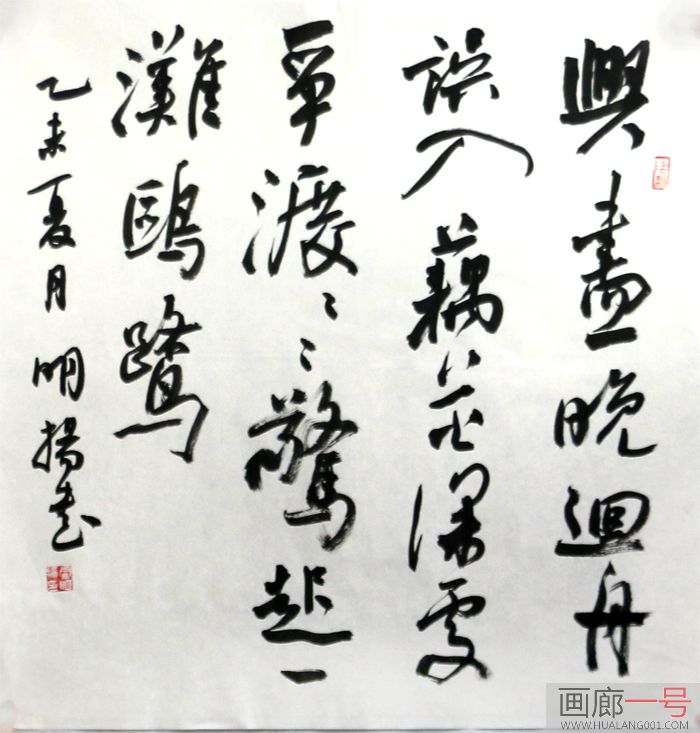 興盡晚迴舟
誤入藕花深處
爭渡〻〻驚起一
灘鷗鷺
乙未夏月 明揚書
画廊一号
WWW.HUALANG001.COM